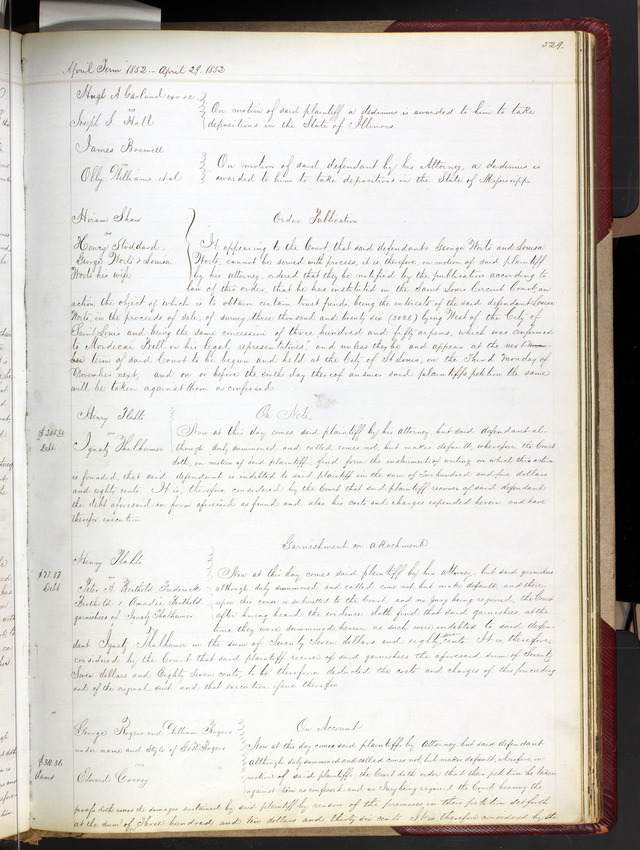 529.
April Term 1852 - April 29. 1852
Hugh A Garland exr &c
vs
Joseph S Hall
On motion of said plaintiff a dedimus is awarded to him to take
depositions in the State of Illinois
James Boswell
vs
Olly Williams et al
On motion of said defendant by his Attorney, a dedimus is
awarded to him to take depositions in the State of Mississippi
Hiram Shaw
vs
Henry Stoddard.
George Worts & Louisa
Worts his wife
Order Publication
It appearing to the Court that said defendants George Worts and Louisa
Worts, cannot be served with process, it is, therefore, on motion of said plaintiff
by his attorney, ordered that they be notified by the publication according to
law of this order, that he has instituted in the Saint Louis Circuit Court, an
action the object of which is to obtain certain trust funds, being the interests of the said defendant Louisa
Worts, in the proceeds of sale, of survey, three thousand and twenty six (3026) lying West of the City of
Saint Louis and being the same concession of three hundred and fifty arpens, which was confirmed
to Mordecai Bell or his legal representatives" and unless they be and appear at the next
term of said Court to be begun and held at the City of St Louis, on the Third Monday of
November next, and on or before the sixth day thereof answer said plaintiffs petition the same
will be taken against them as confessed
Henry
vs
Ignatz Thalheimer
On Note
Debt
Now at this day comes said plaintiff by his attorney, but said defendant al-
though duly summoned and called comes not, but makes default, wherefore the Court
doth, on motion of said plaintiff, find from the instrument of writing on which this action
is founded, that said defendant is indebted to said plaintiff in the sum of Two hundred and dollars
and eighty cents. It is, therefore considered by the Court that said plaintiff recover of said defendant
the debt aforesaid in form aforesaid as found and also his costs and charges expended herein and have
therefor execution
Garnishment on Attachment
Henry
vs
Peter A Berthold, Frederick
Berthold & Amadee Berthold
garnishees of Ignatz Thalheimer
$77.87
Debt
Now at this day comes said plaintiff by his Attorney, but said garnishees
although duly summoned and called come not but make default, and there
upon this cause is submitted to the Court, and no jury being required, the Court
after hearing all the evidence doth find that said garnishees at the
time they were summoned herein as such were indebted to said defen-
dant Ignatz Thalheimer in the sum of Seventy Seven dollars and eighty cents It is, therefore
considered by the Court that said plaintiff recover of said garnishees the aforesaid sum of Seventy
Seven dollars and Eighty Seven cents, to be therefrom deducted the costs and charges of this proceeding
out of the original suit, and that execution issue therefor
George Rogers and William Rogers
under name and style of G & W Rogers
vs
Edward
On Account
Now at this day comes said plaintiffs by attorney, but said defendant
although duly summoned and called comes not, but makes default, wherefore, on
motion of said plaintiffs the Court doth order that their petition be taken
against him as confessed and no Jury being required the Court hearing the
proofs doth assess the damages sustained by said plaintiffs by reason of the premises in their petition set forth
at the sum of Three hundred and dollars and thirty six cents It is therefore considered by the